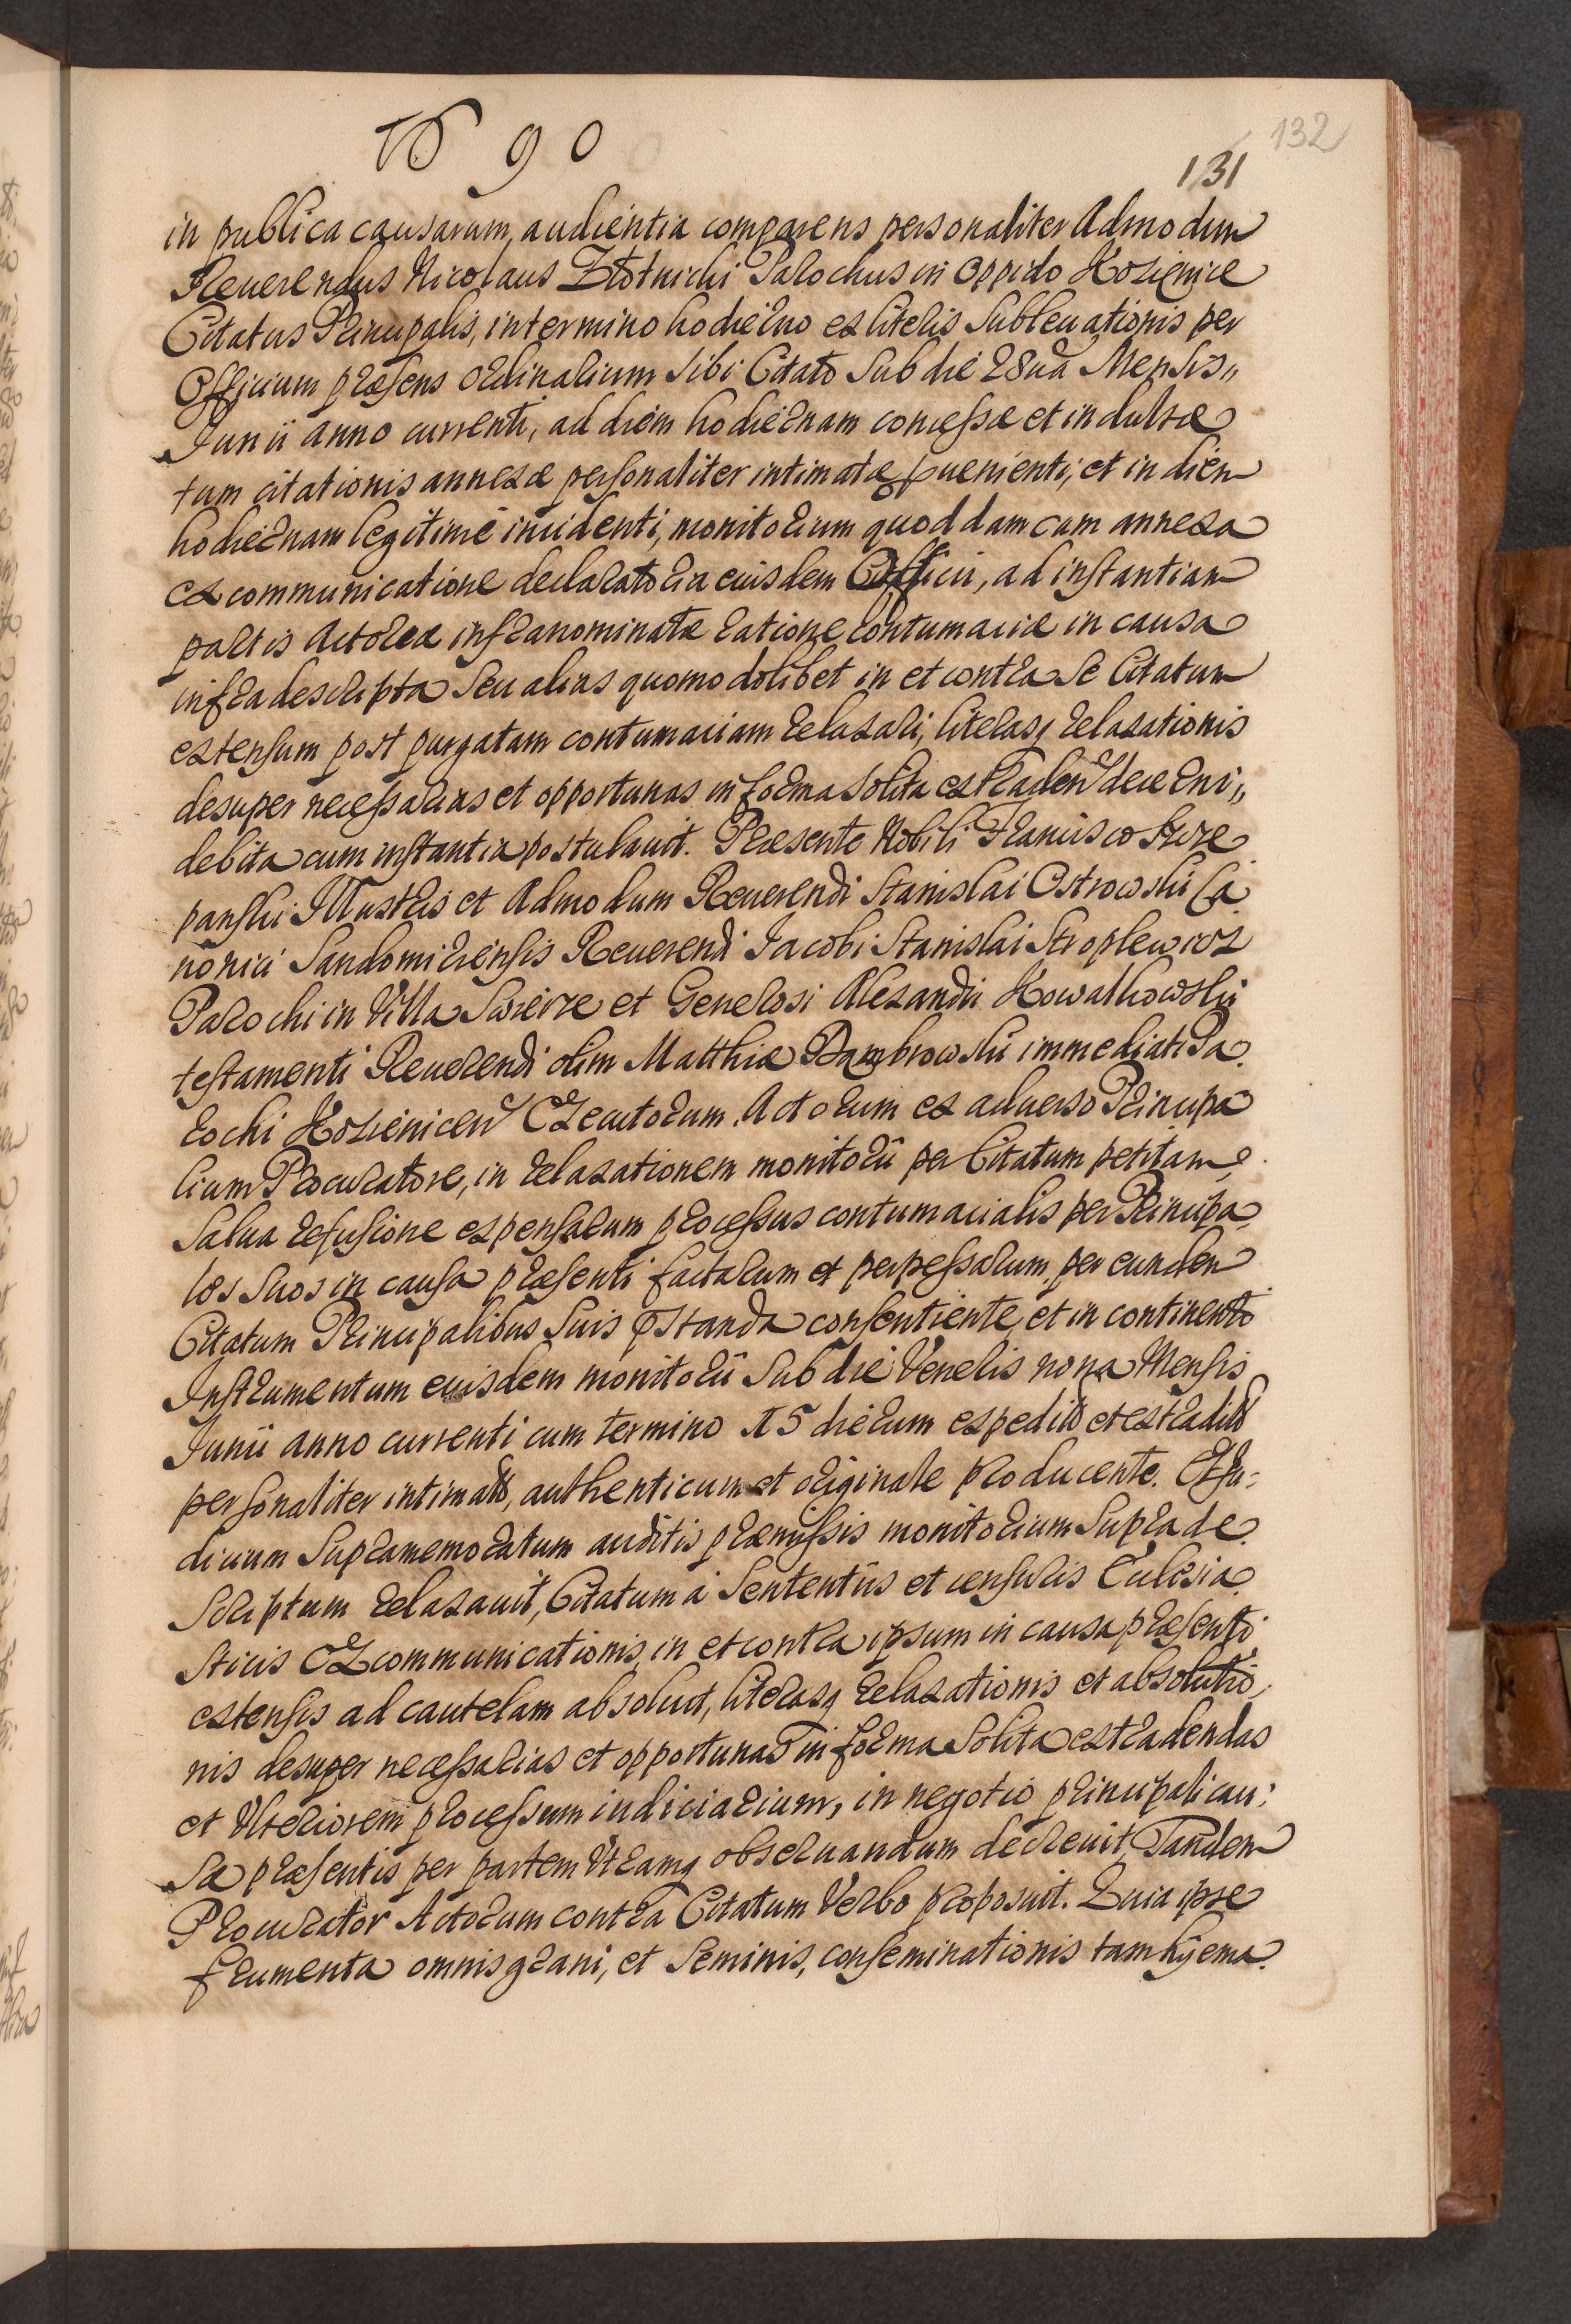 1690
132
131
in publica causarum, audientia comparens personaliter Admodum
Reuerendus Nicolaus Złotnicki Parochus in Oppido Kozienice
Citatus Principalis, in termino hodierno ex literis Subleuationis per
Officium præsens ordinarium sibi Citato Sub die 28ua Mensis
Junii anno currenti, ad diem hodiernam concessæ et indultæ
tum citationis annexæ personaliter intimatæ puenienti, et in diem
hodiernam legitime incidenti, monitorium quoddam cum annexa
excommunicatione declaratoria euisdem Officii, ad instantiam
partis Actoreæ infranominatæ ratione contumaciæ in causa
infradescripta seu alias quomodolibet in et contra se Citatum
extensum post purgatam contumaciam relaxari, literasq relaxationis
desuper necessarias et opportunas in forma solita extraden decerni,,
debita cum instantia postulauit. Præsente Nobili Francisco
panski Illustris et Admodum Reuerendi Stanislai Ostrowski Ca
nonici Sandomiriensis Reuerendi Jacobi Stanislai Stroplewicz
Parochi in Villa Swierze et Generosi Alexandri Kowalkowski
testamenti Reuerendi olim Matthiæ Dambrowski immediati Pa
rochi Kozienicen Executorum. Actorum ex aduerso Principa
lium Procuratore, in relaxationem monitorii per Citatum petitam,
salua refusione expensarum processus contumacialis per Principa
los suos in causa præsenti factarum et perpessarum, per eundem
Citatum Principalibus suis pstanda consentiente, et in continenti
Instrumentum euisdem monitorii Sub die Veneris nona Mensis
Junii anno currenti cum termino 15 dierum expediti et extraditi
personaliter intimati, authenticum et originale producente. Et Iu=
dicium Supramemoratum auditis præmissis monitorium Suprade
scriptum relaxauit, Citatum à Sententiis et censuris Ecclesia
sticis Excommunicationis, in et contra ipsum in causa præsenti
extensis ad cautelam absoluit, literasq relaxationis et absolutio
nis desuper necessarias et opportunas in forma solita extradendas
et Vlteriorem processum iudiciarium, in negotio principali cau:
sæ præsentis per partem Vtramq obseruandum decreuit, Tandem
Procurator Actorum contra Citatum Verbo proposuit. Quia ipse
frumenta omnis grani, et Seminis, conseminationis tam hyema